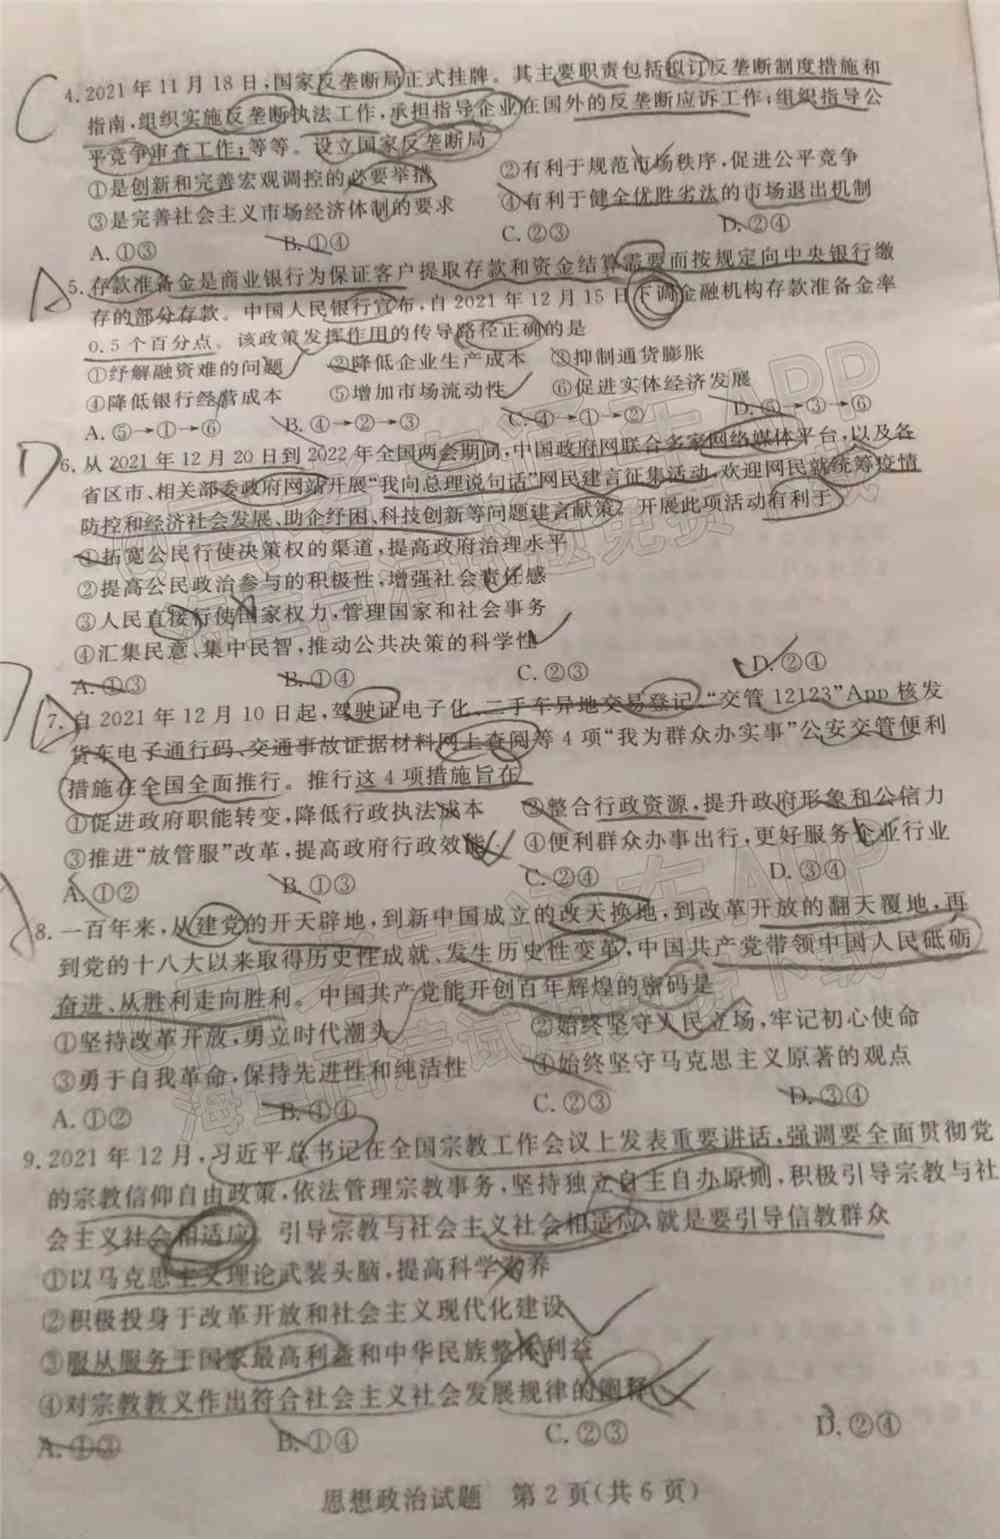 C
4.2021年11月18日,国家反垄断局正式挂牌。其主要职责包括拟订反垄断制度措施和
指南,组织实施反垄断执法工作,承担指导企业在国外的反垄断应诉工作;组织指导公
平竞争审查工作;等等。设立国家反垄断局
①是创新和完善宏观调控的必要举措 ②有利于规范市场秩序,促进公平竞争
③是完善社会主义市场经济体制的要求 ④有利于健全优胜劣汰的市场退出机制
A.①③ B.①④ C.②③ D.②④
A
5.存款准备金是商业银行为保证客户提取存款和资金结算需要而按规定向中央银行缴
存的部分存款。中国人民银行宣布,自2021年12月15日下调金融机构存款准备金率
0.5个百分点。该政策发挥作用的传导路径正确的是
①纾解融资难的问题 ②降低企业生产成本 ③抑制通货膨胀
④降低银行经营成本 ⑤增加市场流动性 ⑥促进实体经济发展
A.⑤→①→⑥ B.④→②→③ C.④→①→② D.⑤→③→⑥
D
6.从2021年12月20日到2022年全国两会期间,中国政府网联合多家网络媒体平台,以及各
省区市、相关部委政府网站开展“我向总理说句话”网民建言征集活动,欢迎网民就统筹疫情
防控和经济社会发展、助企纾困、科技创新等问题建言献策。开展此项活动有利于
①拓宽公民行使决策权的渠道,提高政府治理水平
②提高公民政治参与的积极性,增强社会责任感
③人民直接行使国家权力,管理国家和社会事务
④汇集民意、集中民智,推动公共决策的科学性
A.①③ B.①④ C.②③ D.②④
7.自2021年12月10日起,驾驶证电子化、二手车异地交易登记、“交管12123”App核发
货车电子通行码、交通事故证据材料网上查阅等4项“我为群众办实事”公安交管便利
措施在全国全面推行。推行这4项措施旨在
①促进政府职能转变,降低行政执法成本 ②整合行政资源,提升政府形象和公信力
③推进“放管服”改革,提高政府行政效能 ④便利群众办事出行,更好服务企业行业
A.①② B.①③ C.②④ D.③④
8.一百年来,从建党的开天辟地,到新中国成立的改天换地,到改革开放的翻天覆地,再
到党的十八大以来取得历史性成就、发生历史性变革,中国共产党带领中国人民砥砺
奋进、从胜利走向胜利。中国共产党能开创百年辉煌的密码是
①坚持改革开放,勇立时代潮头 ②始终坚守人民立场,牢记初心使命
③勇于自我革命,保持先进性和纯洁性 ④始终坚守马克思主义原著的观点
A.①② B.①④ C.②③ D.③④
9.2021年12月,习近平总书记在全国宗教工作会议上发表重要讲话,强调要全面贯彻党
的宗教信仰自由政策,依法管理宗教事务,坚持独立自主自办原则,积极引导宗教与社
会主义社会相适应。引导宗教与社会主义社会相适应,就是要引导信教群众
①以马克思主义理论武装头脑,提高科学素养
②积极投身于改革开放和社会主义现代化建设
③服从服务于国家最高利益和中华民族整体利益
④对宗教教义作出符合社会主义社会发展规律的阐释
A.①③ B.①④ C.②③ D.②④
思想政治试题 第2页(共6页)